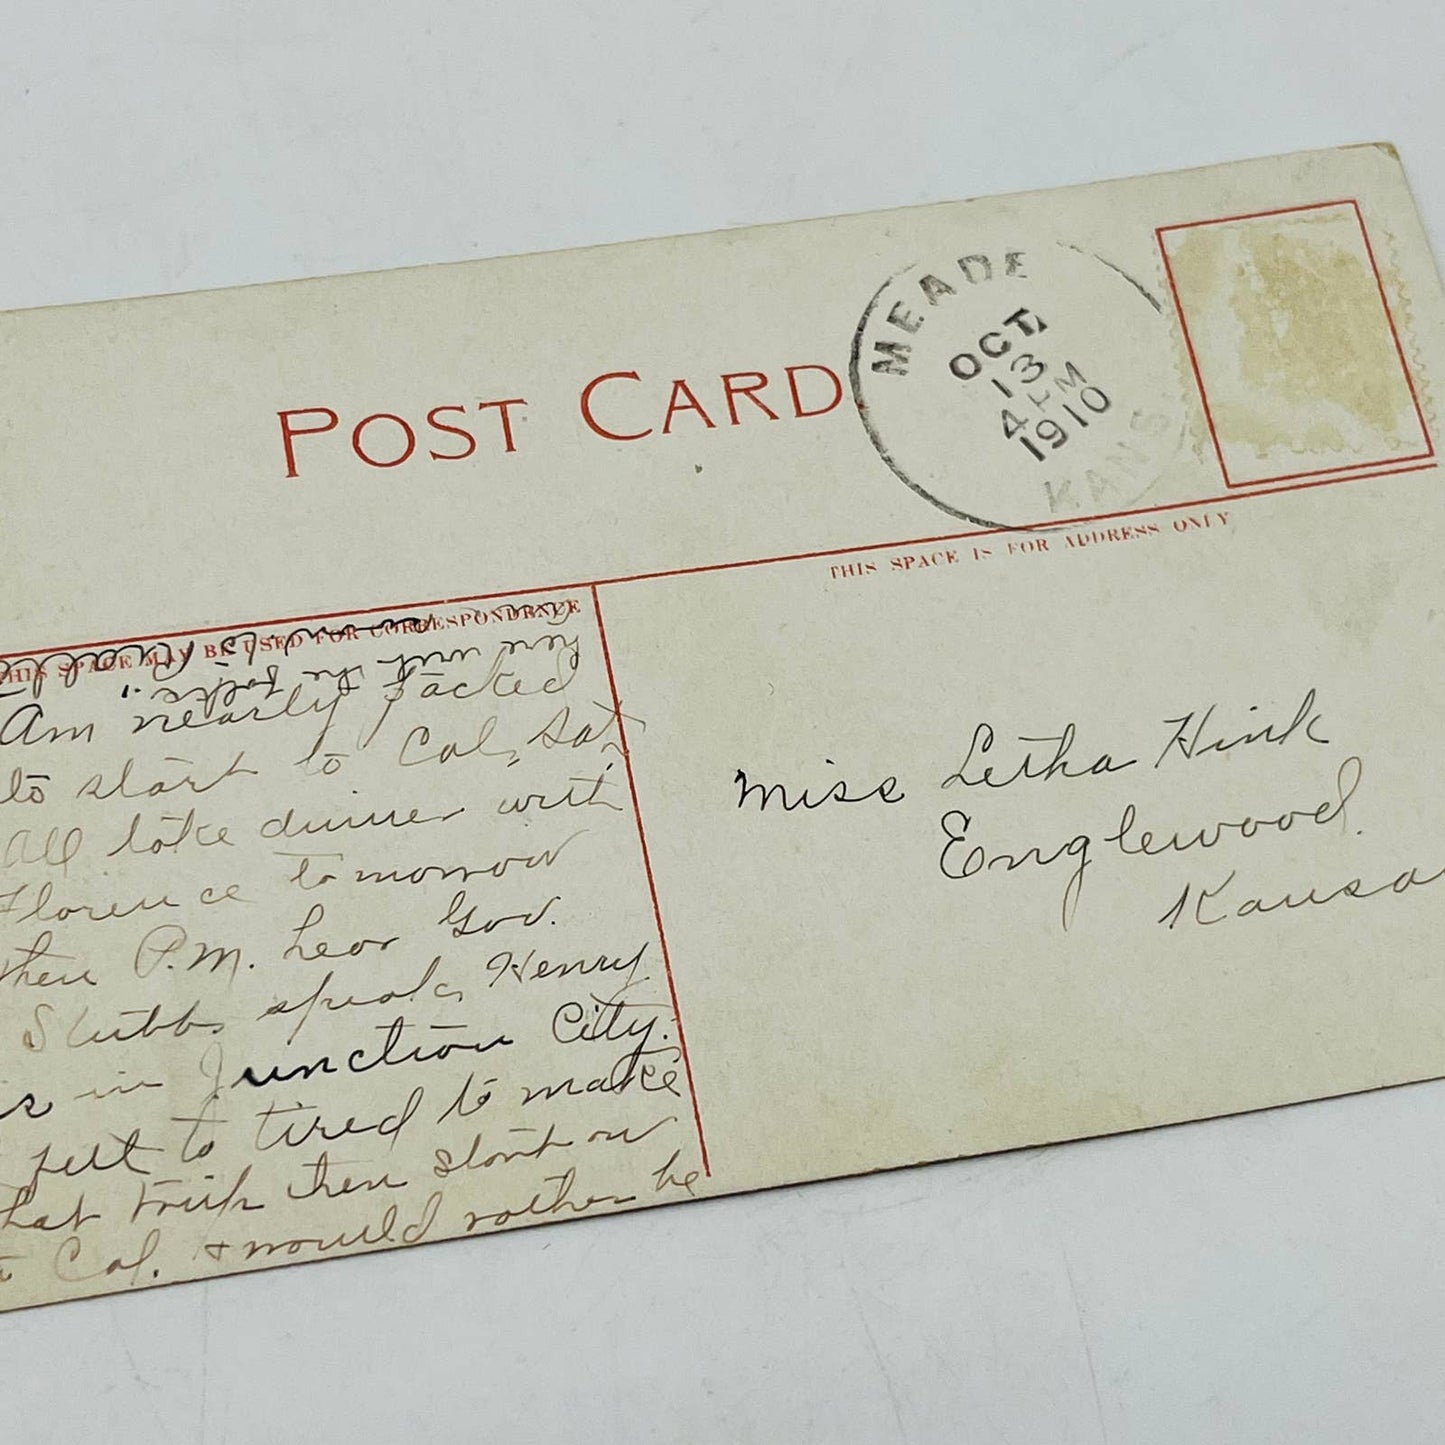 POST CARD
MEADE
OCT
13
4 PM
1910
KANS.
THIS SPACE IS FOR ADDRESS ONLY
THIS SPACE MAY BE USED FOR CORRESPONDENCE
Am nearly packed
to start to Cal, Sat,
All take dinner with
Florence tomorrow
then P.M. hear Gov.
Stubbs speak, Henry
is in Junction City.
felt to tired to make
that trip then start on
to Cal. + would rather be
here with the folks.
Miss Letha Hink
Englewood.
Kansas